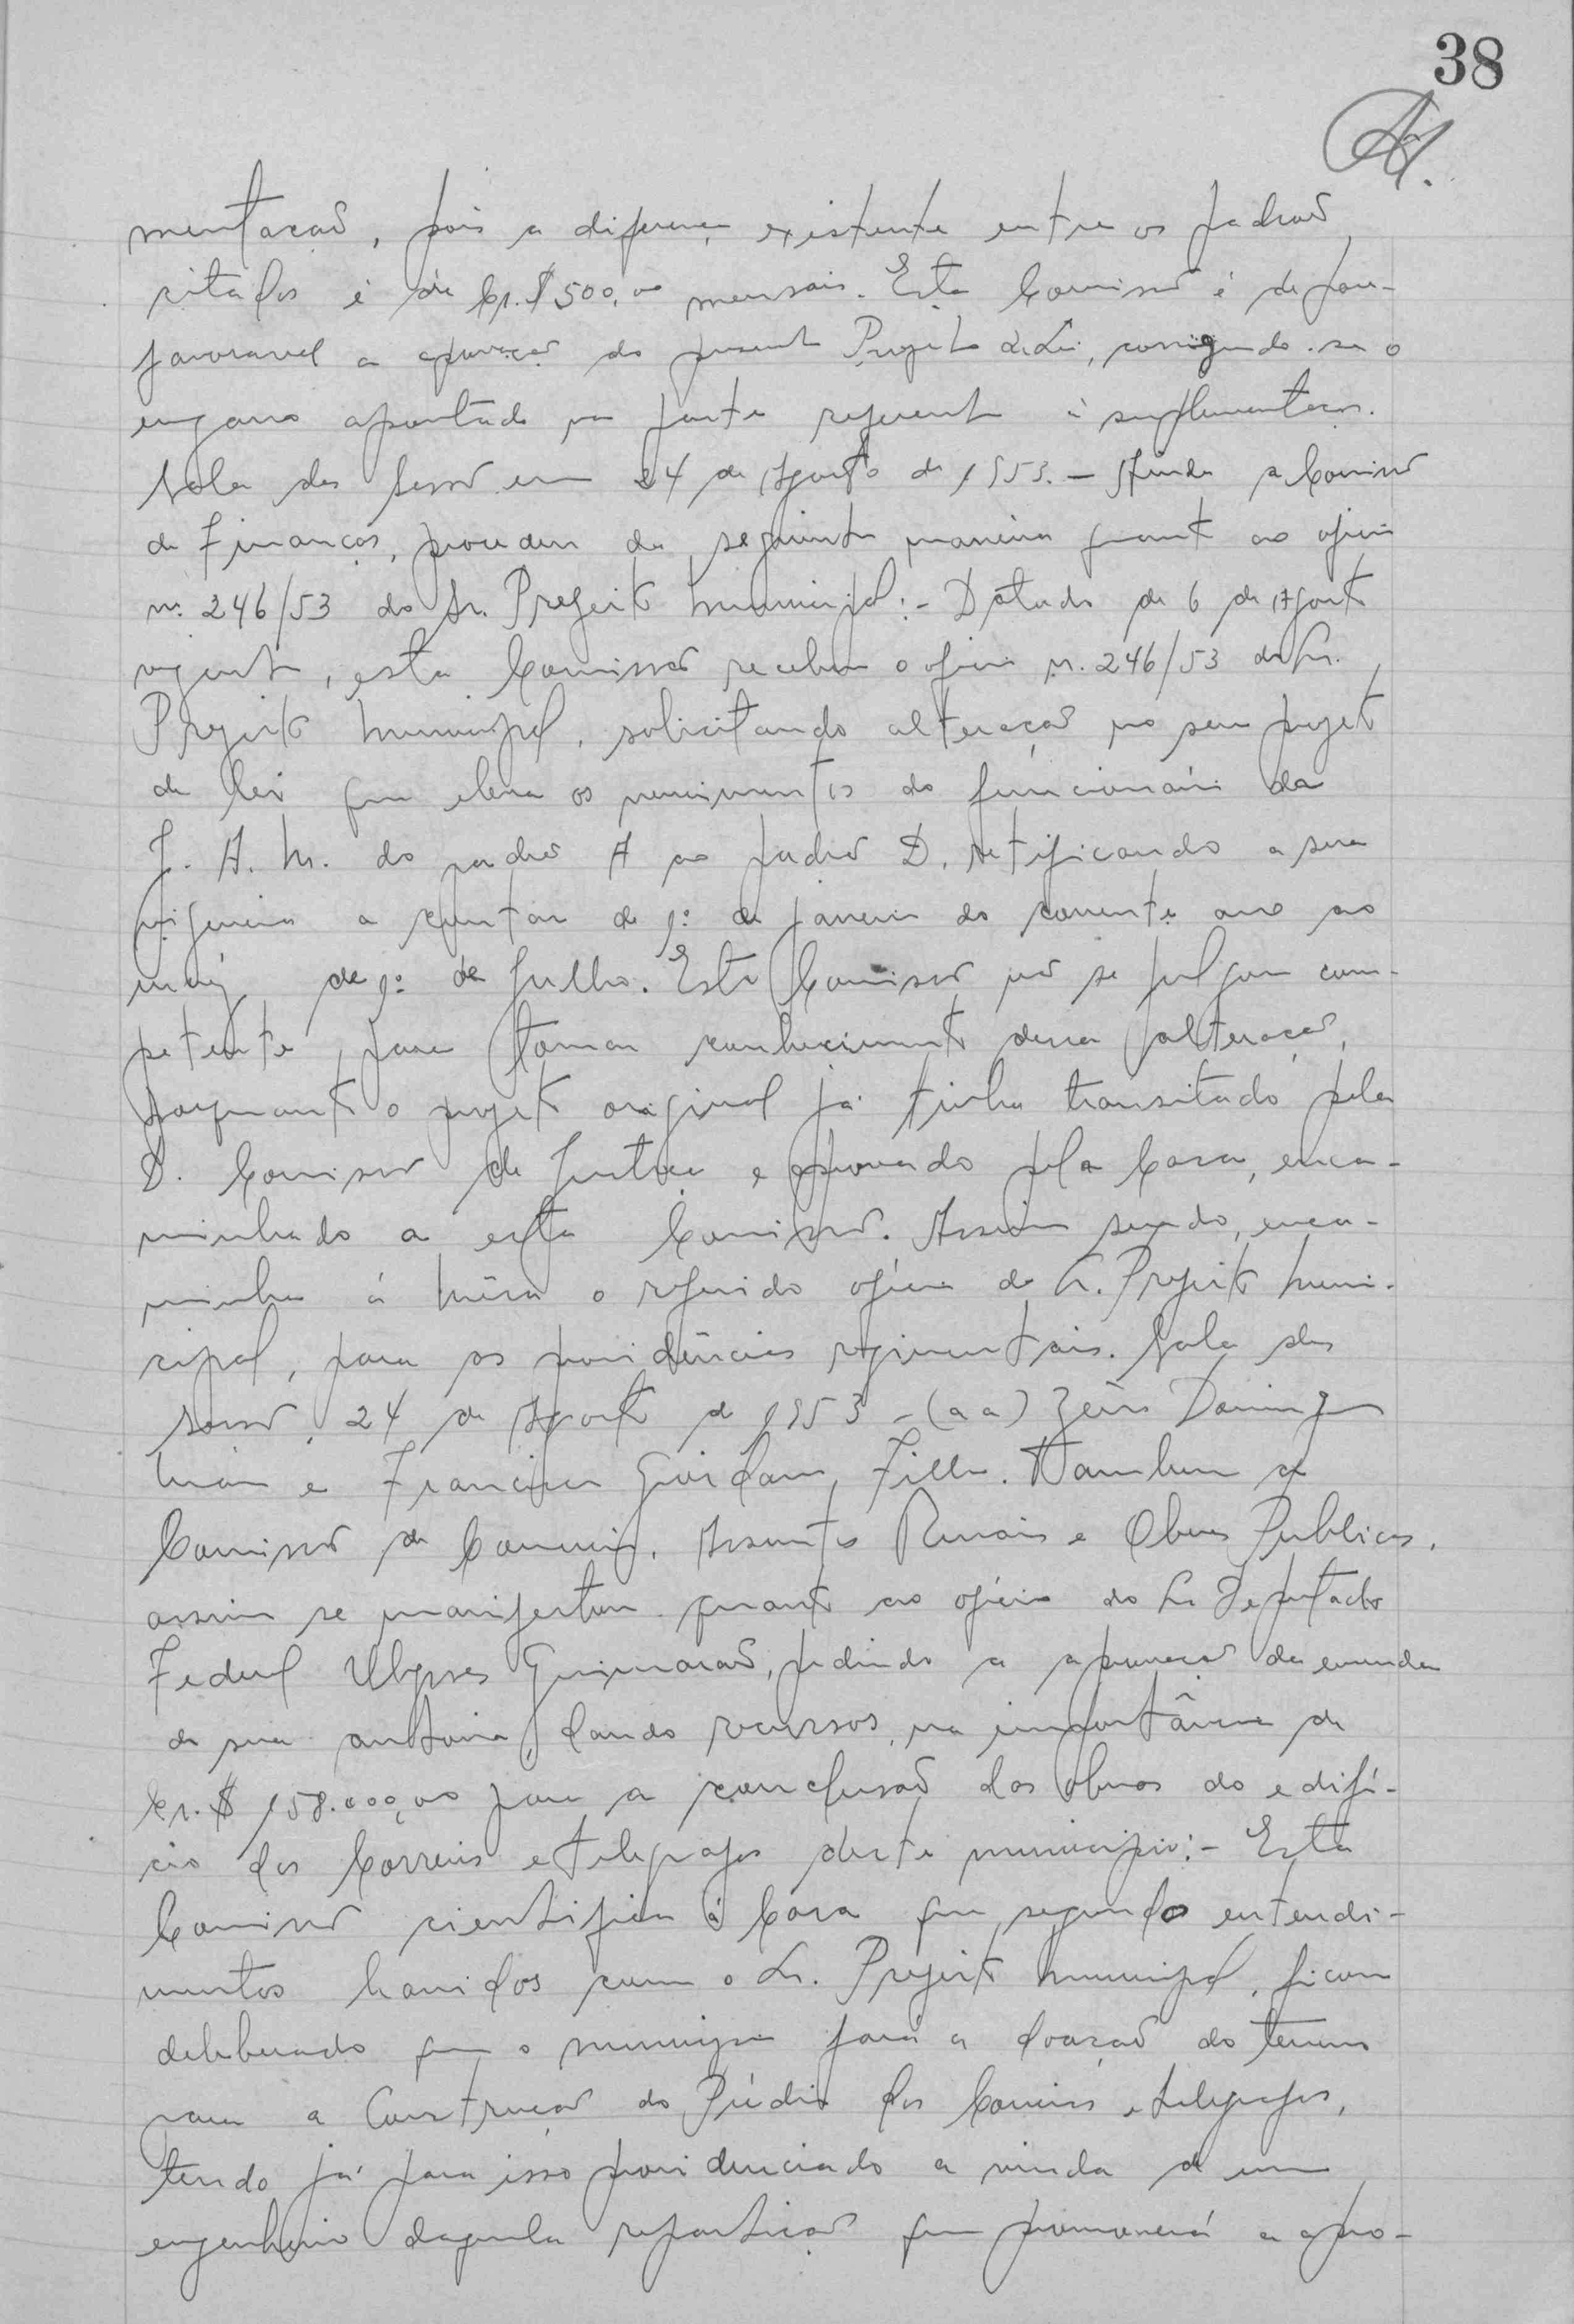 38
mentação, pois a diferença existente entre os padrões
citados é de Cr.$500,00 mensais. Esta Comissão é de pare-
favoravel a aprovação do presente Projeto de Lei, corrigindo-se o
engano apontado na parte referente à suplementação.
Sala das Sessões em 24 de Agosto de 1953. - Ainda a Comissão
de Finanças, procedeu da seguinte maneira quanto ao oficio
nº 246/53 do Sr. Prefeito Municipal:- Datado de 6 de Agosto
vigente, esta Comissão recebeu o oficio n. 246/53 do Sr.
Prefeito Municipal, solicitando alteração no seu projeto
de lei que eleva os vencimentos do funcionário da
J. A. M. do padrão A ao padrão D, retificando a sua
vigencia a contar de 1º de janeiro do corrente ano ao
invéz de 1º de Julho. Esta Comissão não se julgou com-
petente para tomar conhecimento dessa alteração,
porquanto o projeto original já tinha transitado pela
D. Comissão de Justiça e aprovado pela Casa, enca-
minhado a esta Comissão. Assim sendo, enca-
minha á Mêsa o referido oficio do Sr. Prefeito Muni-
cipal, para as providências regimentais. Sala das
Sessões, 24 de Agosto de 1953 - (aa)
e Francisco Filho. Tambem a
Comissão de Comercio, Assuntos Rurais e Obras Publicas,
assim se manifestou quanto ao oficio do Sr. Deputado
Federal Ulysses Guimarães, pedindo a aprovação da emenda
de sua autoria, dando recursos, na importância de
Cr.$ 158.000,00 para a conclusão das obras do edifí-
cio dos Correios e telegrafos deste municipio:- Esta
Comissão cientifica á Casa que, segundo entendi-
mentos havidos com o Sr. Prefeito Municipal, ficou
deliberado que o municipio fará a doação do terreno
para a Construção do Prédio dos Correios e telegrafos,
tendo já para isso providenciado a vinda de um
engenheiro daquela repartição que promoverá a apro-